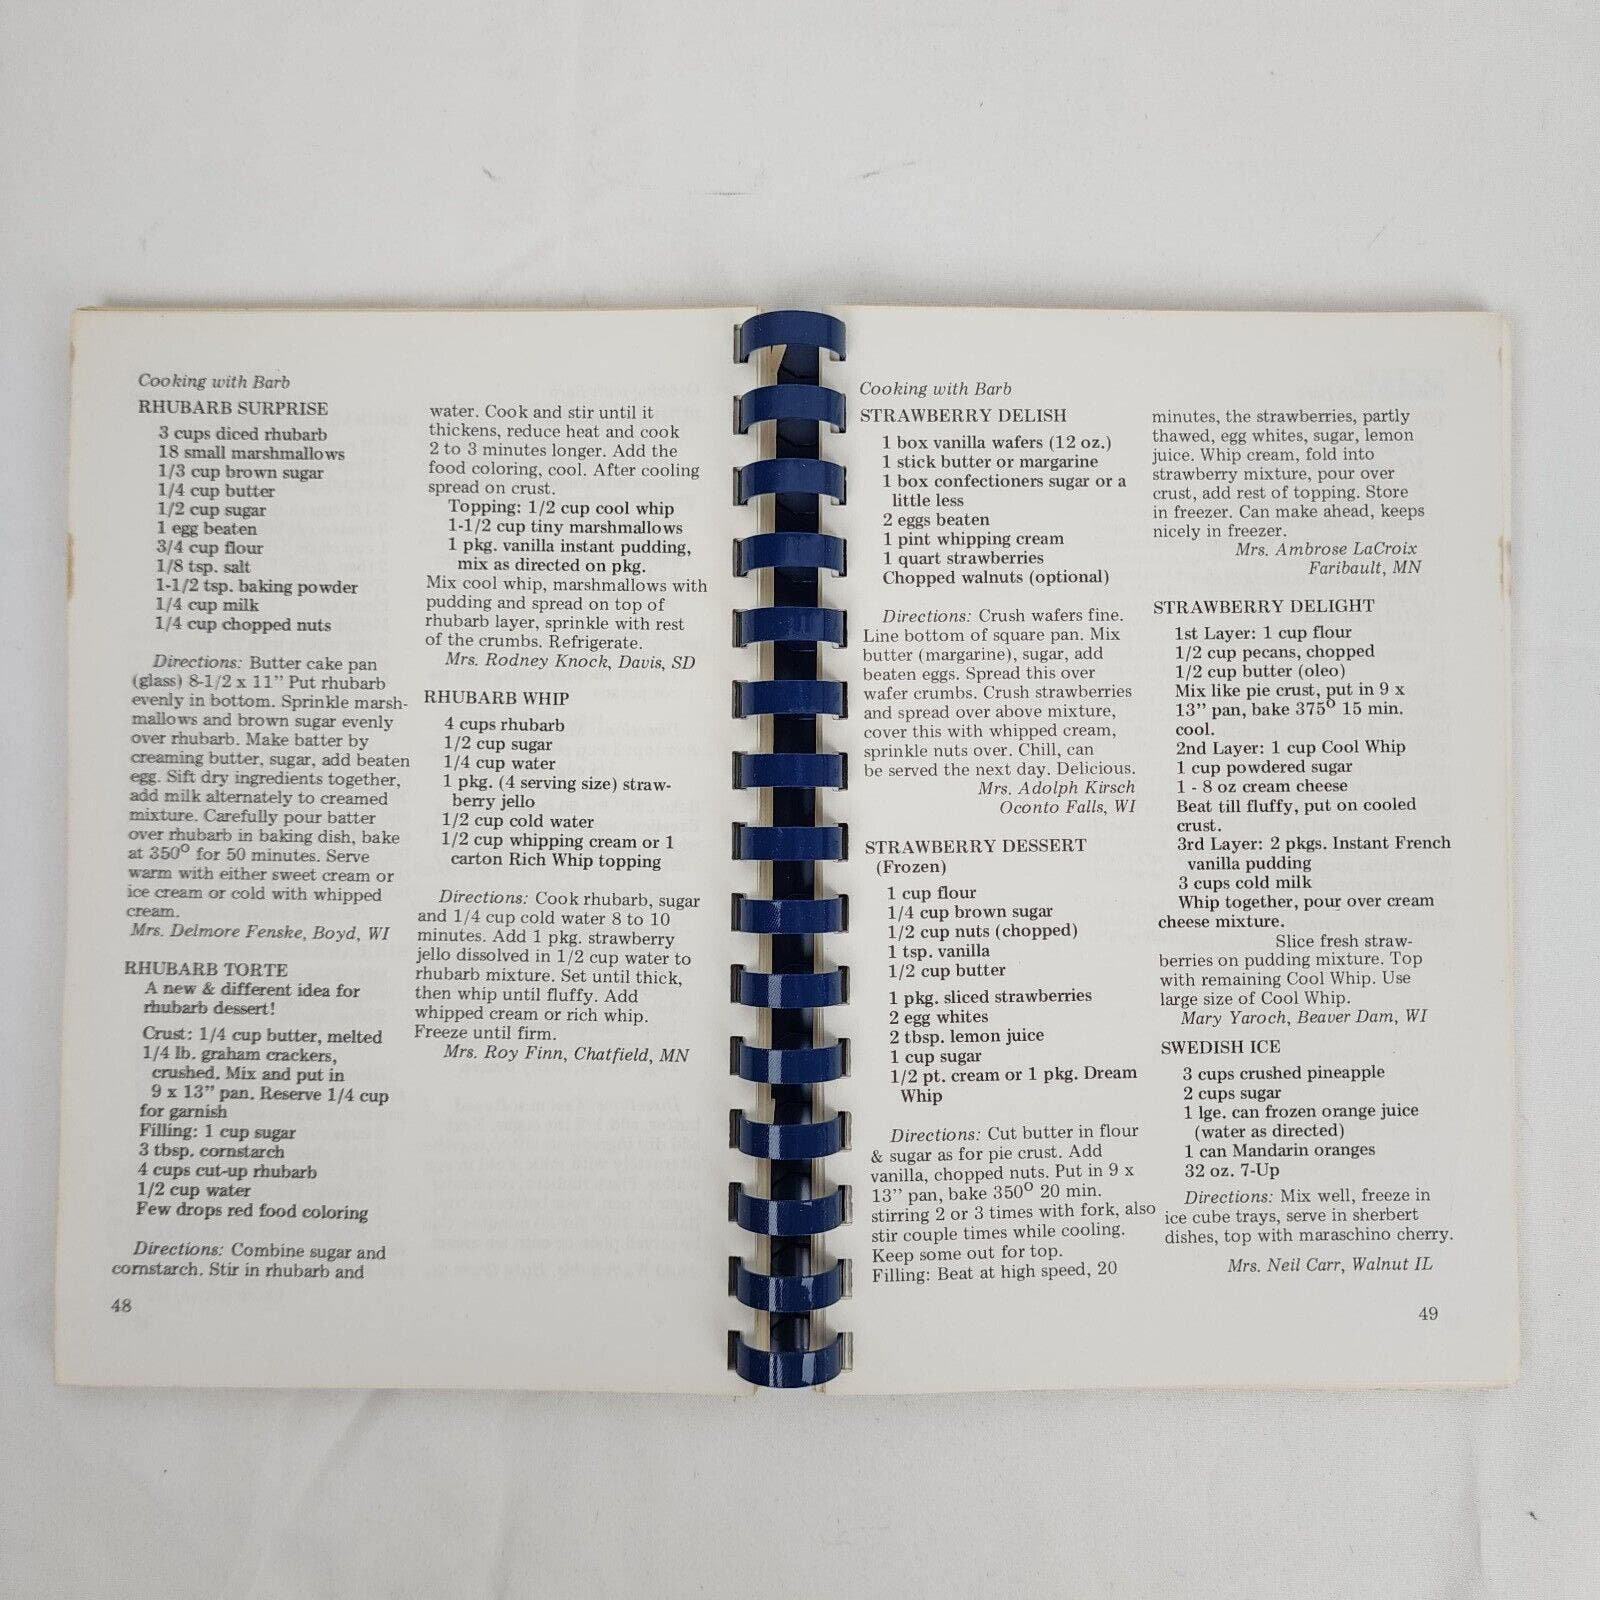 Cooking with Barb
RHUBARB SURPRISE
3 cups diced rhubarb
18 small marshmallows
1/3 cup brown sugar
1/4 cup butter
1/2 cup sugar
1 egg beaten
3/4 cup flour
1/8 tsp. salt
1-1/2 tsp. baking powder
1/4 cup milk
1/4 cup chopped nuts
Directions: Butter cake pan
(glass) 8-1/2 x 11” Put rhubarb
evenly in bottom. Sprinkle marsh-
mallows and brown sugar evenly
over rhubarb. Make batter by
creaming butter, sugar, add beaten
egg. Sift dry ingredients together,
add milk alternately to creamed
mixture. Carefully pour batter
over rhubarb in baking dish, bake
at 350° for 50 minutes. Serve
warm with either sweet cream or
ice cream or cold with whipped
cream.
Mrs. Delmore Fenske, Boyd, WI
RHUBARB TORTE
A new & different idea for
rhubarb dessert!
Crust: 1/4 cup butter, melted
1/4 lb. graham crackers,
crushed. Mix and put in
9 x 13” pan. Reserve 1/4 cup
for garnish
Filling: 1 cup sugar
3 tbsp. cornstarch
4 cups cut-up rhubarb
1/2 cup water
Few drops red food coloring
Directions: Combine sugar and
cornstarch. Stir in rhubarb and
48
water. Cook and stir until it
thickens, reduce heat and cook
2 to 3 minutes longer. Add the
food coloring, cool. After cooling
spread on crust.
Topping: 1/2 cup cool whip
1-1/2 cup tiny marshmallows
1 pkg. vanilla instant pudding,
mix as directed on pkg.
Mix cool whip, marshmallows with
pudding and spread on top of
rhubarb layer, sprinkle with rest
of the crumbs. Refrigerate.
Mrs. Rodney Knock, Davis, SD
RHUBARB WHIP
4 cups rhubarb
1/2 cup sugar
1/4 cup water
1 pkg. (4 serving size) straw-
berry jello
1/2 cup cold water
1/2 cup whipping cream or 1
carton Rich Whip topping
Directions: Cook rhubarb, sugar
and 1/4 cup cold water 8 to 10
minutes. Add 1 pkg. strawberry
jello dissolved in 1/2 cup water to
rhubarb mixture. Set until thick,
then whip until fluffy. Add
whipped cream or rich whip.
Freeze until firm.
Mrs. Roy Finn, Chatfield, MN
Cooking with Barb
STRAWBERRY DELISH
1 box vanilla wafers (12 oz.)
1 stick butter or margarine
1 box confectioners sugar or a
little less
2 eggs beaten
1 pint whipping cream
1 quart strawberries
Chopped walnuts (optional)
Directions: Crush wafers fine.
Line bottom of square pan. Mix
butter (margarine), sugar, add
beaten eggs. Spread this over
wafer crumbs. Crush strawberries
and spread over above mixture,
cover this with whipped cream,
sprinkle nuts over. Chill, can
be served the next day. Delicious.
Mrs. Adolph Kirsch
Oconto Falls, WI
STRAWBERRY DESSERT
(Frozen)
1 cup flour
1/4 cup brown sugar
1/2 cup nuts (chopped)
1 tsp. vanilla
1/2 cup butter
1 pkg. sliced strawberries
2 egg whites
2 tbsp. lemon juice
1 cup sugar
1/2 pt. cream or 1 pkg. Dream
Whip
Directions: Cut butter in flour
& sugar as for pie crust. Add
vanilla, chopped nuts. Put in 9 x
13” pan, bake 350° 20 min.
stirring 2 or 3 times with fork, also
stir couple times while cooling.
Keep some out for top.
Filling: Beat at high speed, 20
minutes, the strawberries, partly
thawed, egg whites, sugar, lemon
juice. Whip cream, fold into
strawberry mixture, pour over
crust, add rest of topping. Store
in freezer. Can make ahead, keeps
nicely in freezer.
Mrs. Ambrose LaCroix
Faribault, MN
STRAWBERRY DELIGHT
1st Layer: 1 cup flour
1/2 cup pecans, chopped
1/2 cup butter (oleo)
Mix like pie crust, put in 9 x
13” pan, bake 375° 15 min.
cool.
2nd Layer: 1 cup Cool Whip
1 cup powdered sugar
1 - 8 oz cream cheese
Beat till fluffy, put on cooled
crust.
3rd Layer: 2 pkgs. Instant French
vanilla pudding
3 cups cold milk
Whip together, pour over cream
cheese mixture.
Slice fresh straw-
berries on pudding mixture. Top
with remaining Cool Whip. Use
large size of Cool Whip.
Mary Yaroch, Beaver Dam, WI
SWEDISH ICE
3 cups crushed pineapple
2 cups sugar
1 lge. can frozen orange juice
(water as directed)
1 can Mandarin oranges
32 oz. 7-Up
Directions: Mix well, freeze in
ice cube trays, serve in sherbert
dishes, top with maraschino cherry.
Mrs. Neil Carr, Walnut IL
49